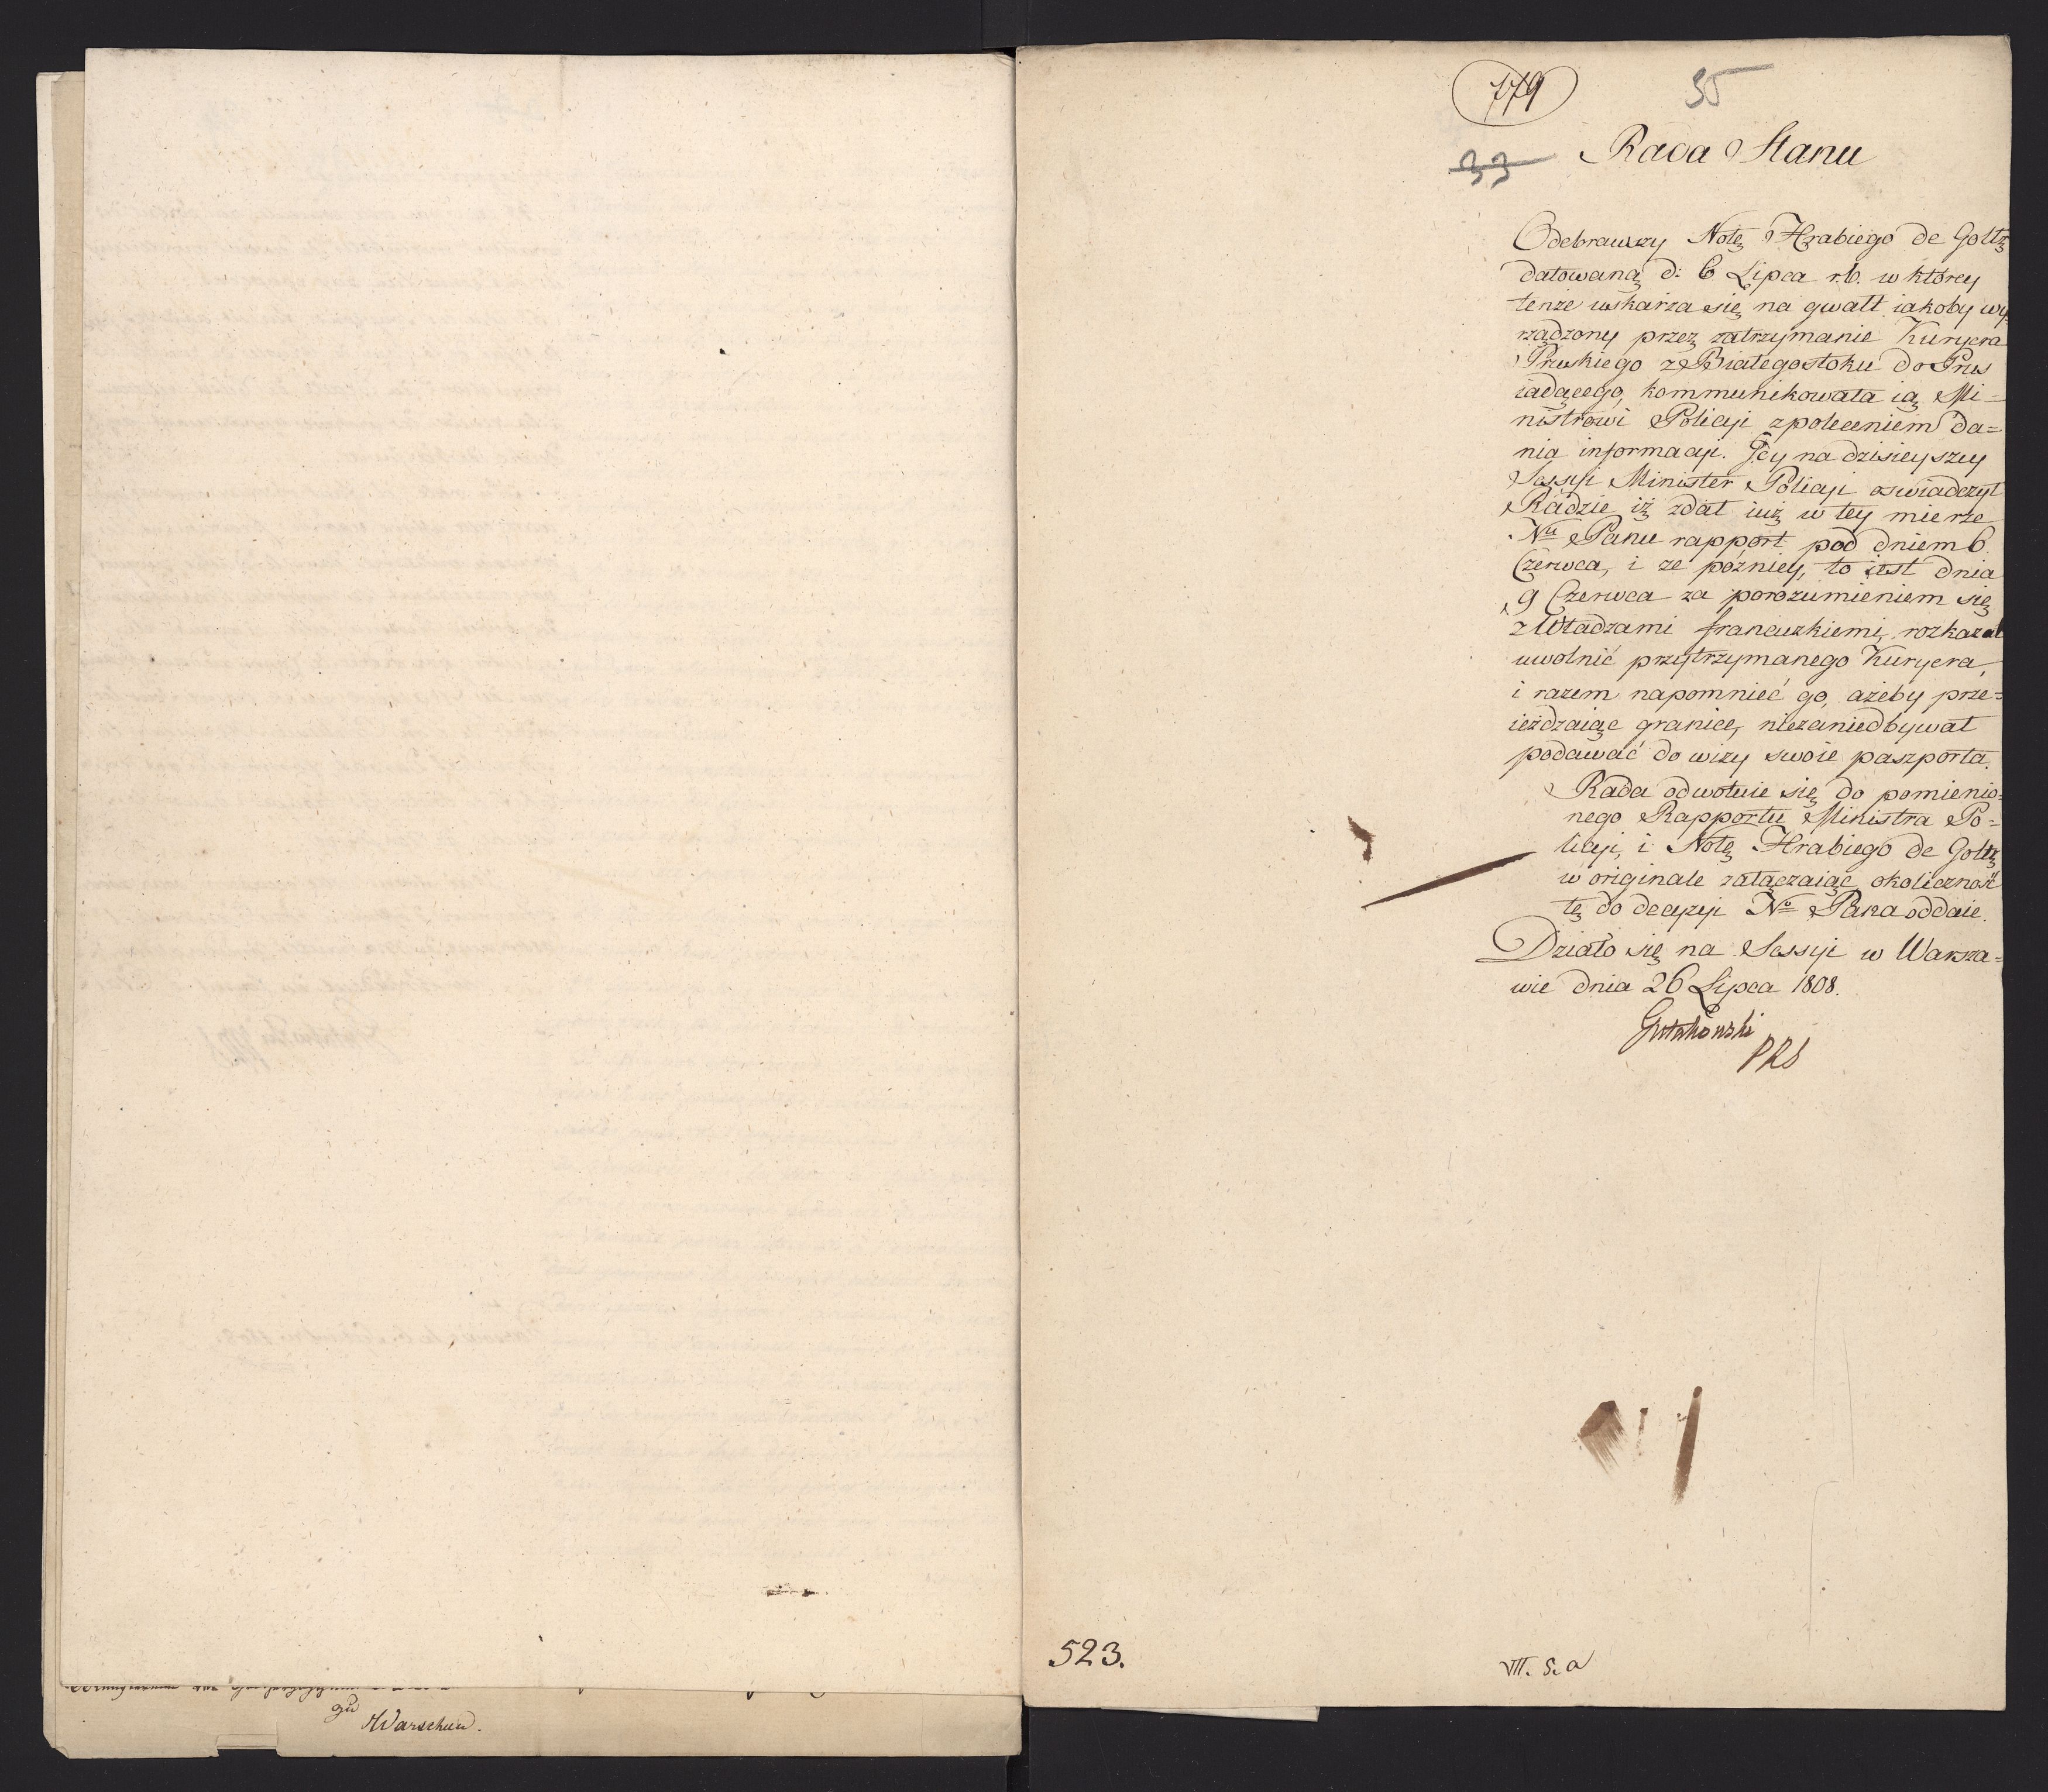 779
35
33
Rada Stanu
Odebrawszy Notę Hrabiego de Goltz
datowaną d: 6 Lipca r.b. w którey
tenże uskarża się na gwałt iakoby wy-
rządzony przez zatrzymanie Kuryera
Pruskiego z Białegostoku do Prus
iadącego, kommunikowała ią Mi=
nistrowi Policyi z poleceniem da=
nia informacyi. Gdy na dzisieyszey
Sessyi Minister Policyi oswiadczył
Radzie iż zdał iuż w tey mierze
Nu Panu rapport pod dniem 6.
Czerwca, i że pózniey, to iest dnia
9 Czerwca za porozumieniem się
z Władzami francuzkiemi, rozkazał
uwolnić przytrzymanego Kuryera,
i razem napomnieć go, ażeby prze=
ieżdzaiąc granicę, niezaniedbywał
podawać do wizy swoie paszporta.
Rada odwołuie się do pomienio=
nego Rapportu Ministra Po=
licyi, i Notę Hrabiego de Goltz
w originale załączaiąc okoliczność
tę do decyzyi No Pana oddaie.
Działo się na Sessyi w Warsza=
wie dnia 26 Lipca 1808.
Gutakowski
PRS
523.
VII. 5. a
zu
Warschau.